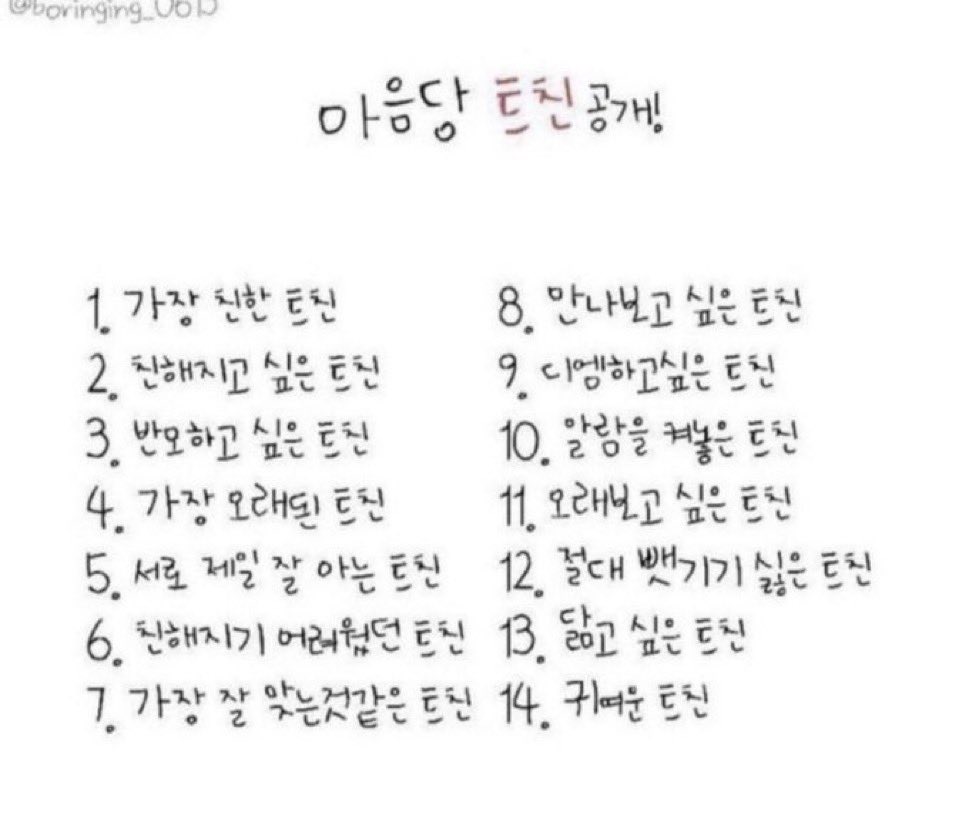 마음당 트친 공개!
1. 가장 친한 트친
2. 친해지고 싶은 트친
3. 반모하고 싶은 트친
4. 가장 오래된 트친
5. 서로 제일 잘 아는 트친
6. 친해지기 어려웠던 트친
7. 가장 잘 맞는것같은 트친
8. 만나보고 싶은 트친
9. 디엠하고싶은 트친
10. 알람을 켜놓은 트친
11. 오래보고 싶은 트친
12. 절대 뺏기기 싫은 트친
13. 닮고 싶은 트친
14. 귀여운 트친